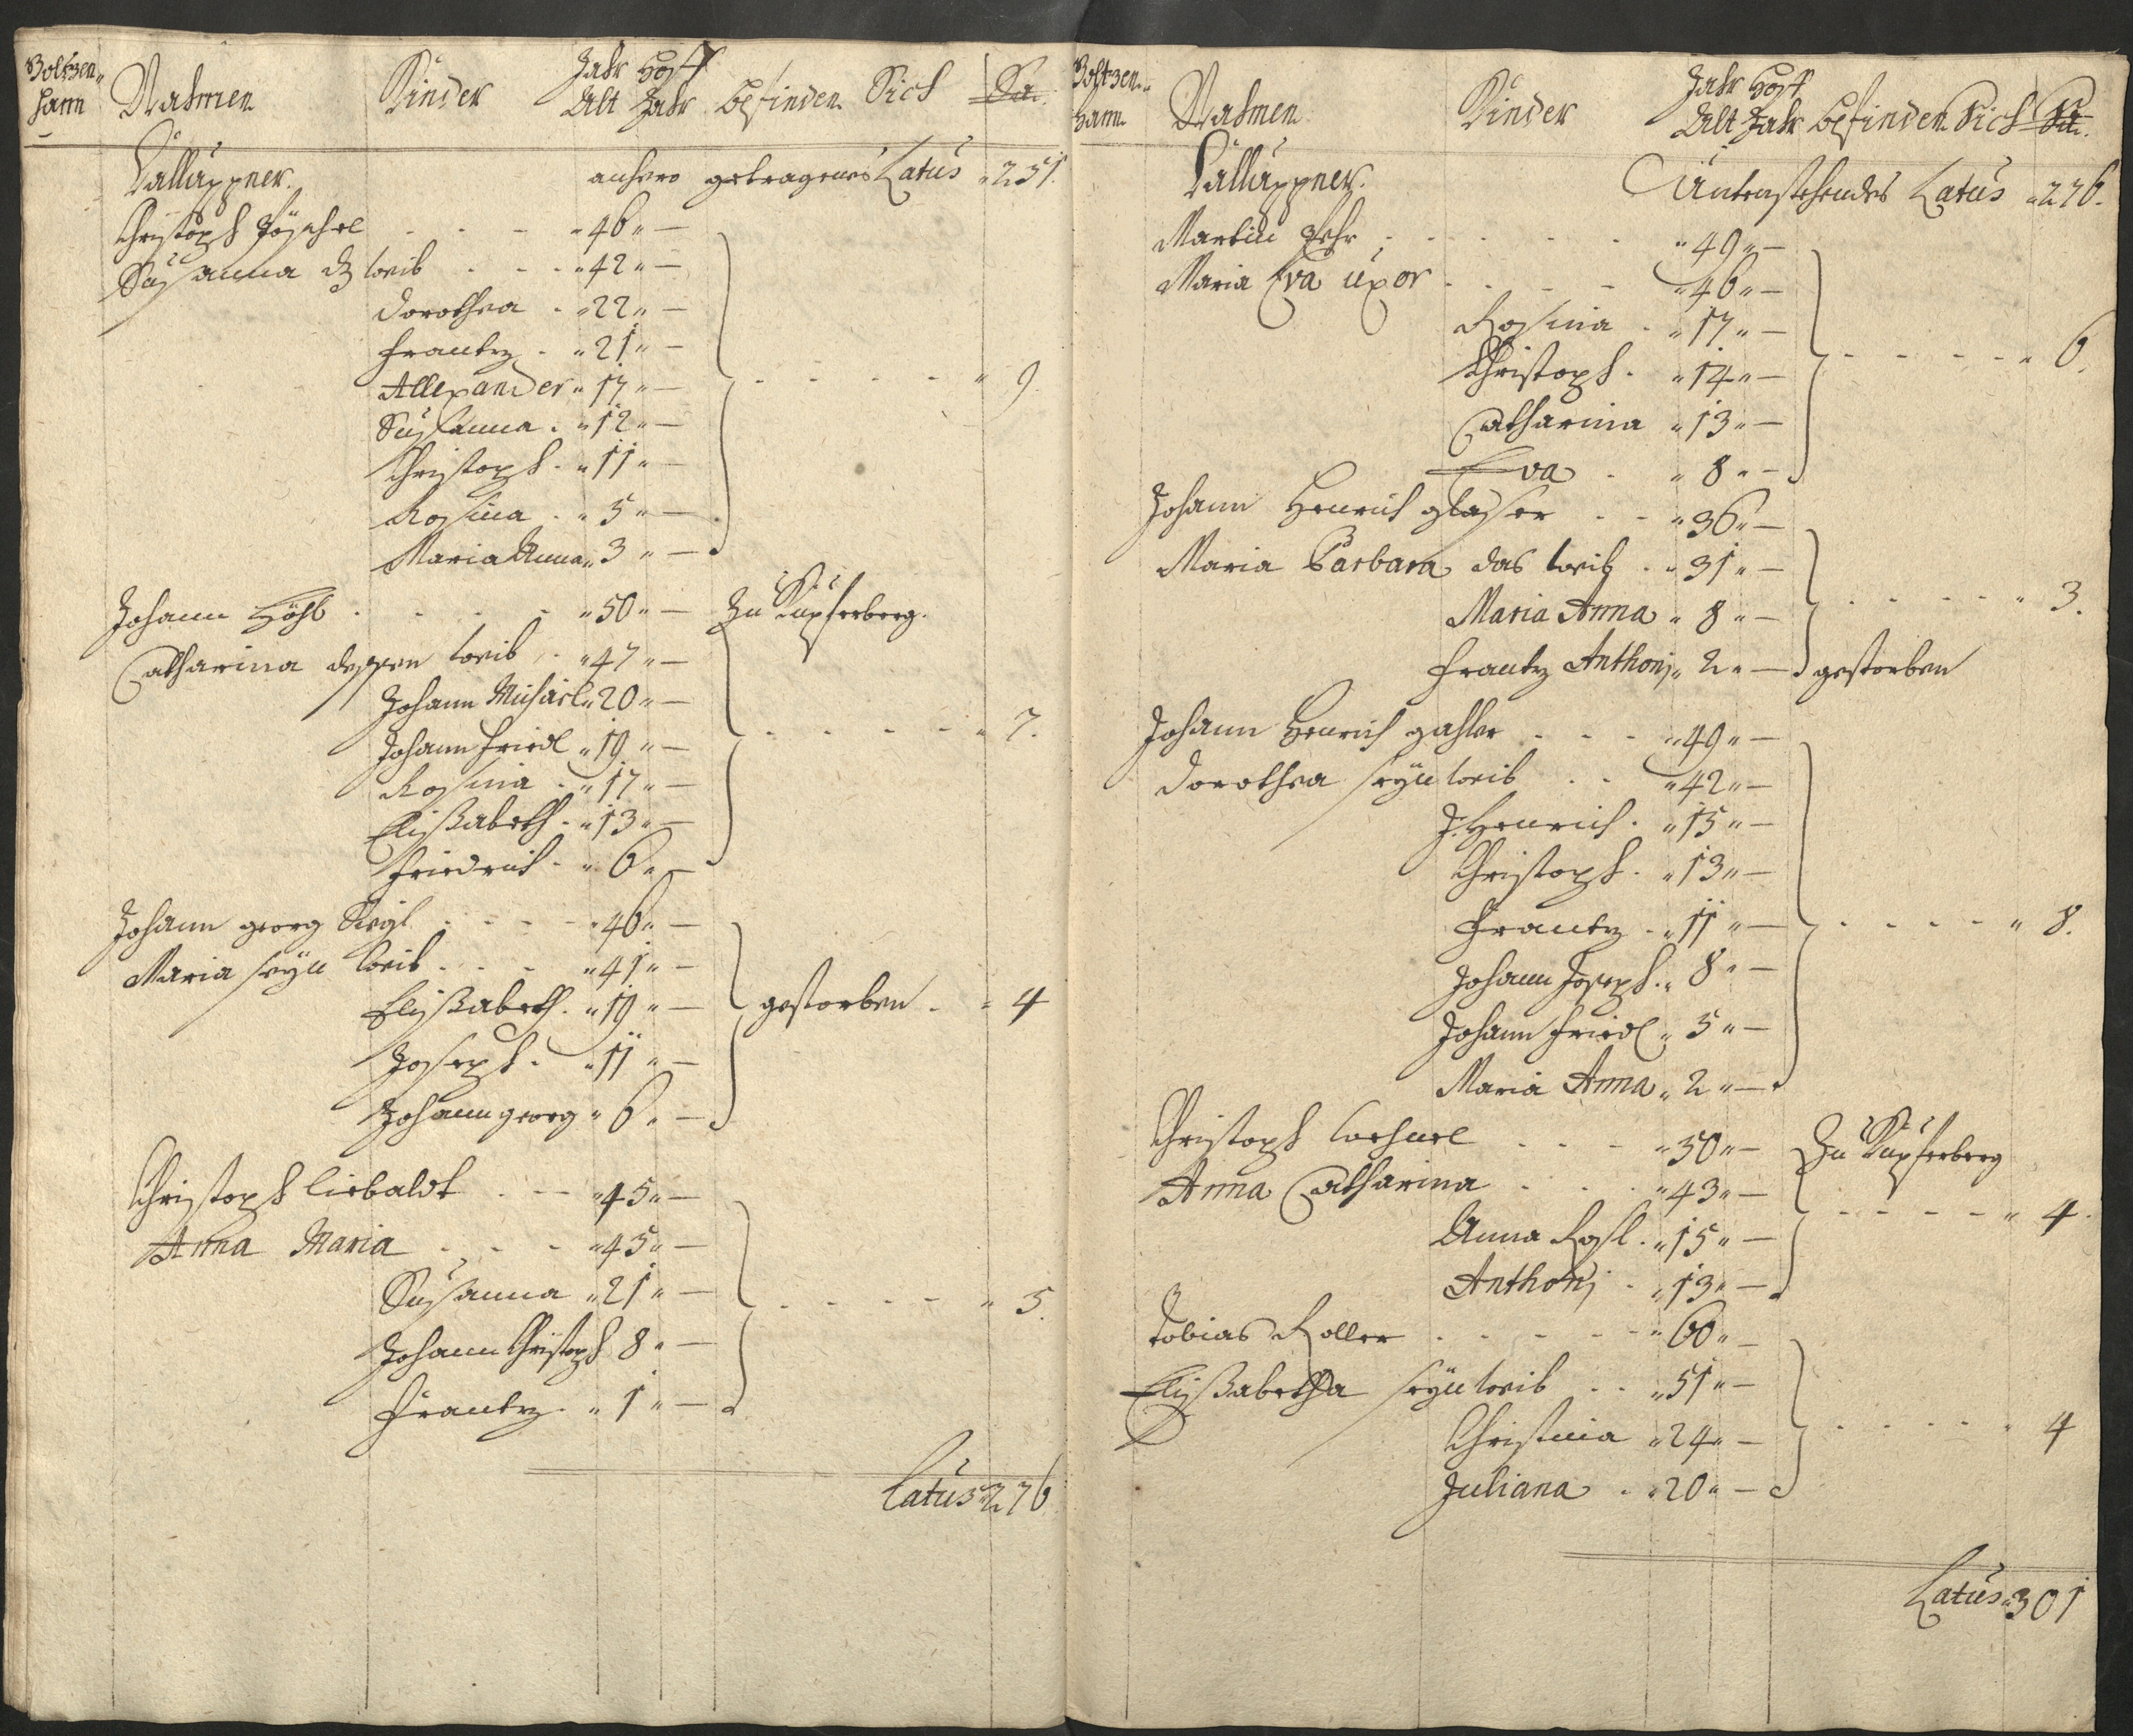 Boltzen-
hann
Nahmen Kinder Jahr Hof
Alt Jahr befinden Sich Sa.
anhero getragenes Latus " 251.
Christoph " 46 " —
Susanna weib " 42 " —
Dorothea " 22 " —
Frantz " 21 " —
Allexander " 17 " — " 9.
Susanna " 12 " —
Christoph " 11 " —
Rosina " 5 " —
Maria Anna " 3 " —
Johann " 50 " — Zu Kupferberg.
Catharina dessen weib " 47 " —
Johann Michäel " 20 " —
Johann Friedl " 19 " — " 7.
Rosina " 17 " —
Elißabeth " 13 " —
Friedrich " 6 " —
Johann georg " 46 " —
Maria seyn weib " 41 " —
Elißabeth " 19 " — gestorben " 4
Joseph " 11 " —
Johann georg " 6 " —
Christoph liebaldt " 45 " —
Anna Maria " 45 " —
Susanna " 21 " — " 5.
Johann Christoph 8 " —
Frantz " 1 " —
Latus " 276
Boltzen-
hann
Nahmen Kinder Jahr Hof
Alt Jahr befinden Sich Sa.
Untenstehendes Latus " 276.
Martin " 49 " —
Maria Eva uxor " 46 " —
Rosina " 17 " —
Christoph " 14 " — " 6.
Catharina " 13 " —
Eva " 8 " —
Johann Henrich glaser " 36 " —
Maria Barbara das weib " 31 " —
Maria Anna " 8 " — " 3.
Frantz Anthonj " 2 " — gestorben
Johann Henrich gahler " 49 " —
Dorothea seyn weib " 42 " —
J. Henrich " 15 " —
Christoph " 13 " —
Frantz " 11 " — " 8.
Johann Joseph " 8 " —
Johann Friedl " 5 " —
Maria Anna " 2 " —
Christoph " 50 " — Zu Kupferberg
Anna Catharina " 43 " — " 4.
Anna Rosl " 15 " —
Anthonj " 13 " —
Tobias Roller " 60 " —
Elißabetha seyn weib " 51 " —
Christina " 24 " — " 4
Juliana " 20 " —
Latus " 301